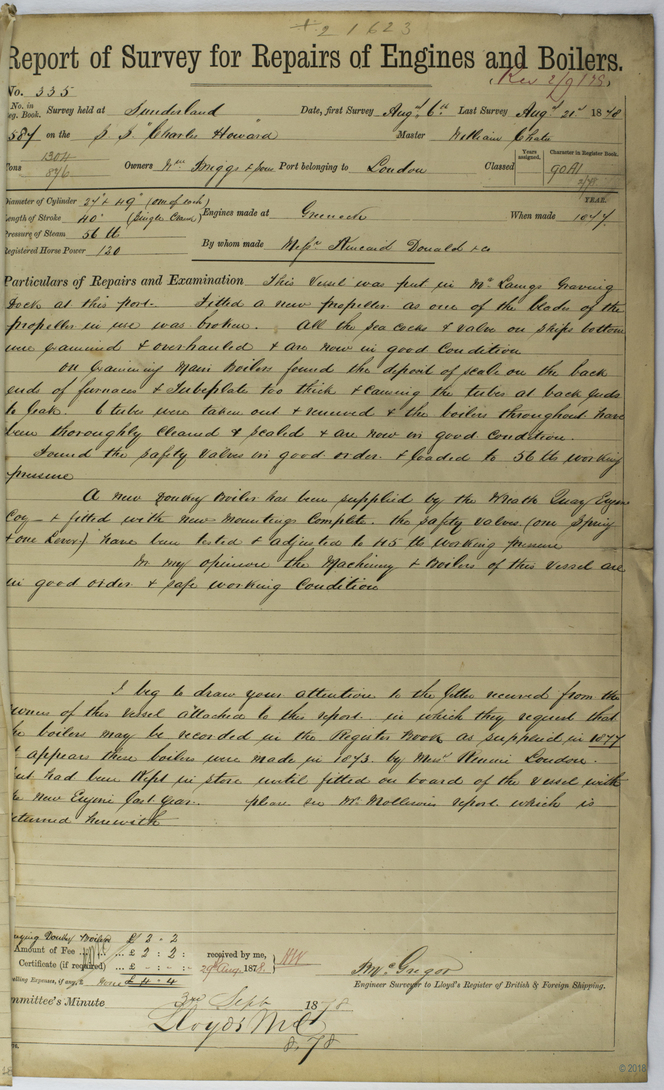 21623
Report of Survey for Repairs of Engines and Boilers.
Rec 2/9/78
No. 335
No. in Reg. Book. Survey held at Sunderland Date, first Survey Augt 6th Last Survey Augt 21st 1878
584 on the S.S. "Charles Howard" Master William
Tons 1304 876 Owners Wm & Sons Port belonging to London Classed Years assigned. Character in Register Book. 90A1
Diameter of Cylinder 27" & 49" (one of each) Engines made at Greenock When made YEAR. 1877
Length of Stroke 40" (Single Crank)
Pressure of Steam 56 lb By whom made Messrs Kincaid Donald & Co
Registered Horse Power 120
Particulars of Repairs and Examination This Vessel was put in Mr Laings Graving
Dock at this port. Fitted a new propeller as one of the blades of the
propeller in use was broken. All the sea cocks & valves on ships bottom
were examined & overhauled & are now in good condition
On examining Main Boilers found the deposit of scale on the back
ends of furnaces & tubeplate too thick & causing the tubes at back ends
to leak. 6 tubes were taken out & renewed & the boilers throughout have
been thoroughly cleaned & scaled & are now in good condition.
Found the safety valves in good order & loaded to 56 lbs working
pressure
A new Donkey Boiler has been supplied by the Wreath Quay Engine
Coy & fitted with new mountings complete. the safety valves (one Spring
& one Lever) have been tested & adjusted to 45 lb working pressure
In my opinion the Machinery & Boilers of this vessel are
in good order & safe working condition
I beg to draw your attention to the letter received from the
owners of this vessel attached to this report in which they request that
the boilers may be recorded in the Register Book as supplied in 1877
it appears these boilers were made in 1873 by Messrs Rennie London.
but had been kept in store until fitted on board of the vessel with
the new Engine last year. please see Mr report which is
returned herewith
Donkey Boiler £ 2 - 2
Amount of Fee ... £ 2 : 2 : received by me,
Certificate (if required) ... £ - : - : - 29 Aug. 1878.
Travelling Expenses, if any, £ None £ 4 - 4
J McGregor
Engineer Surveyor to Lloyd's Register of British & Foreign Shipping.
Committee's Minute 3rd Sept 1878
Lloyds MC
8.78
© 2018